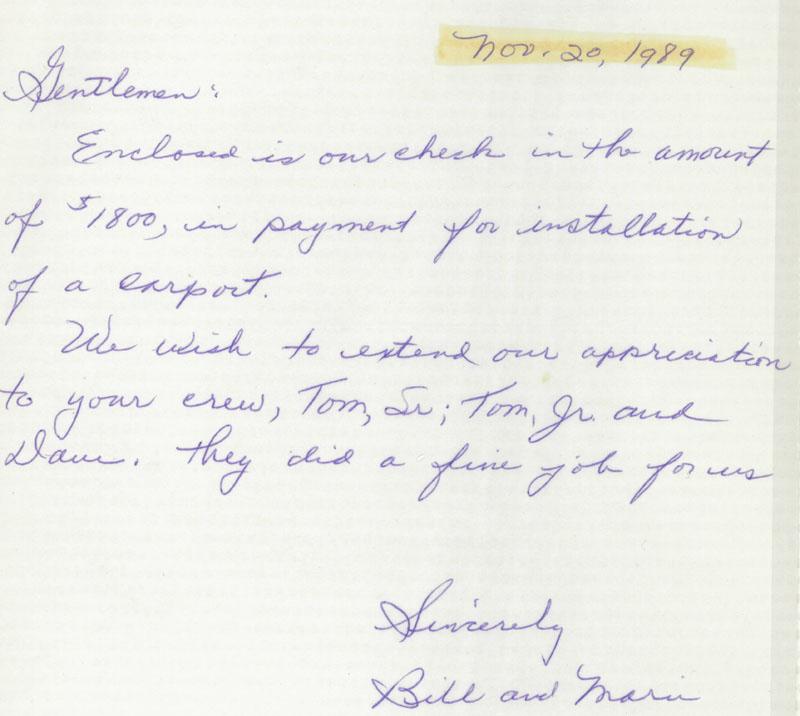 Nov. 20, 1989
Gentlemen:
Enclosed is our check in the amount
of $1800, in payment for installation
of a carport.
We wish to extend our appreciation
to your crew, Tom, Sr; Tom, Jr. and
Dave. They did a fine job for us
Sincerely
Bill and Marie